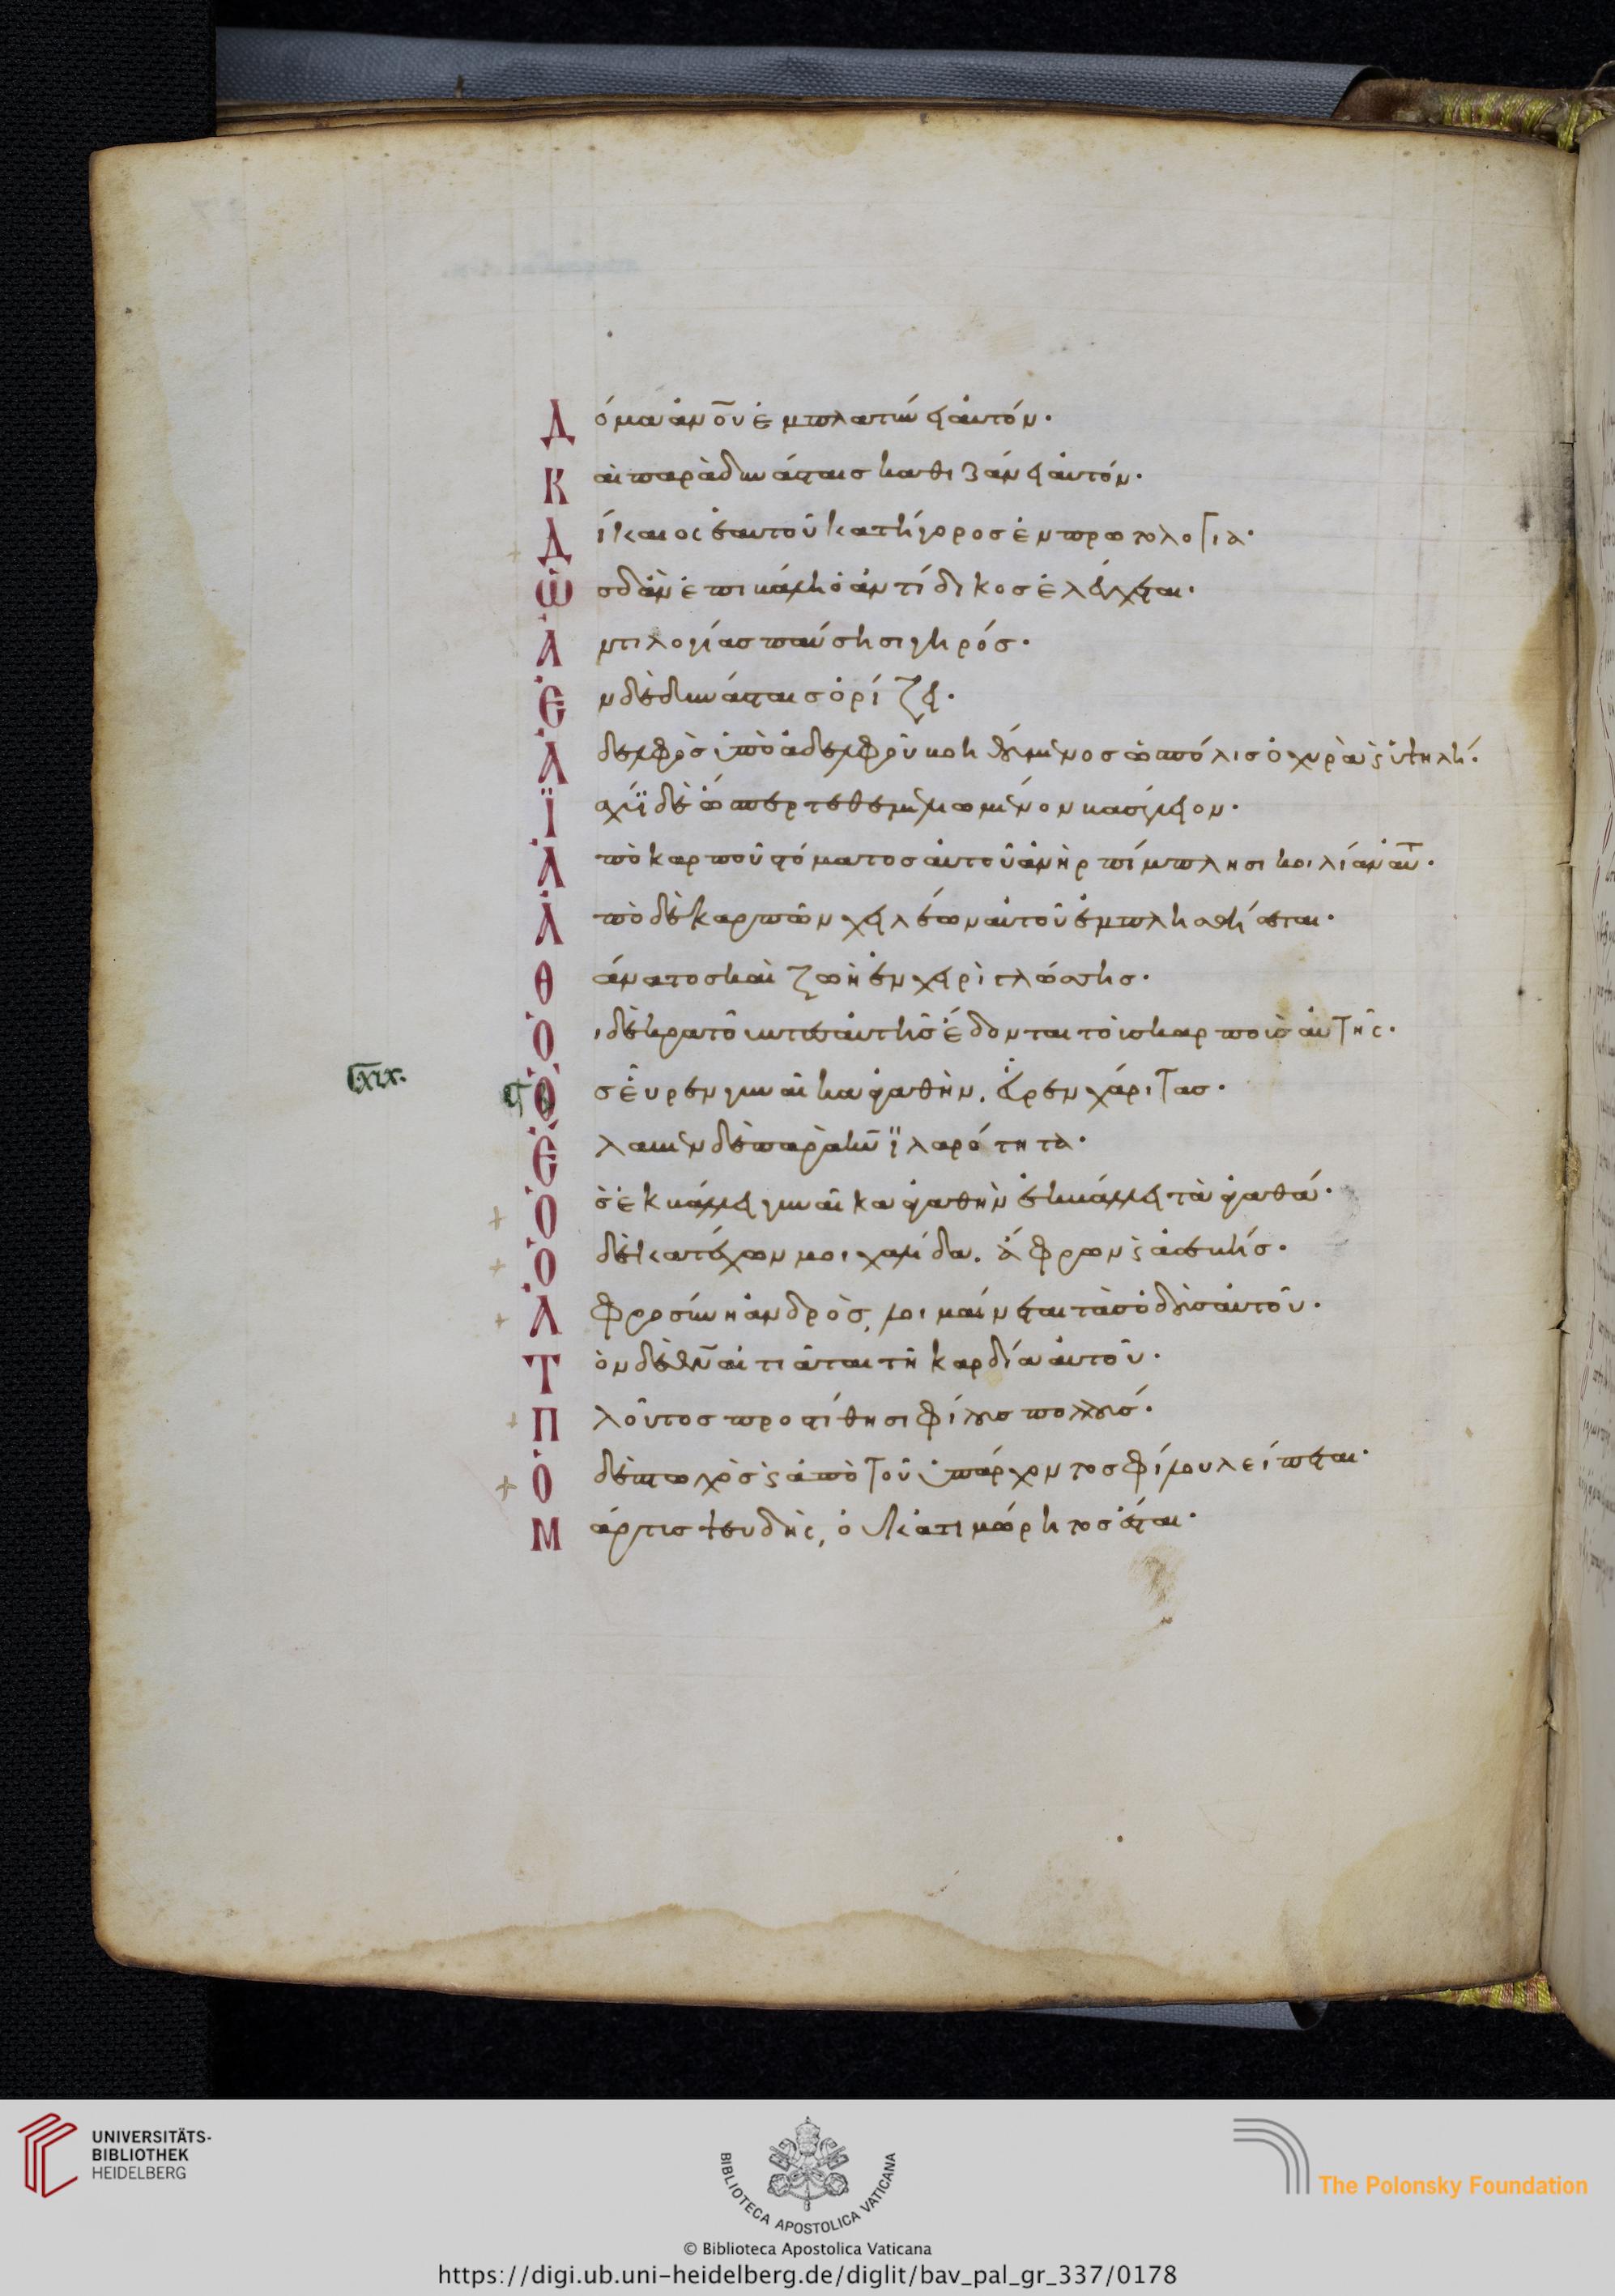 Δόμα ἀν̅ο̅υ̅ ἐμπλατύνει αὐτόν·
Καὶ παρὰ δυνάσταις καθιζάνει αὐτόν·
Δίκαιος ἑαυτοῦ κατήγορος ἐν πρωτολογία·
Ὡς δ' ἂν ἐπιβάλη ὁ ἀντίδικος ἐλέγχεται·
Ἀντιλογίας παύση σιγηρός·
Ἐν δὲ δυνάσταις ὁρίζει·
Ἀδελφὸς ὑπὸ ἀδελφοῦ βοηθούμενος ὡς πόλις ὀχυρὰ καὶ ὑψηλή·
Ϊσχύϊ δὲ ὥσπερ τεθεμελιωμένον βασίλειον·
Ἀπὸ καρποῦ στόματος αὐτοῦ ἀνὴρ πίμπλησι κοιλίαν αὐτ·
Ἀπὸ δὲ καρπῶν χειλέων αὐτοῦ ἐμπλησθήσεται·
Θάνατος καὶ ζωὴ ἐν χειρὶ γλώσσης·
Οἱ δὲ κρατοῦντες αὐτῆς ἔδονται τοὺς καρποὺς αὐτῆς·
lxix.
Ὃς εὗρεν γυναῖκα ἀγαθὴν, εὗρεν χάριτας·
Ἔλαβεν δὲ παρὰ θ̅υ̅ ϊλαρότητα·
Ὃς ἐκβάλλει γυναῖκα ἀγαθὴν ἐκβάλλει τὰ ἀγαθά·
Ὁ δὲ κατέχων μοιχαλίδα, ἄφρων καὶ ἀσεβής·
Ἀφροσύνη ἀνδρὸς, λυμαίνεται τὰς ὁδοὺς αὐτοῦ·
Τὸν δὲ θ̅ν̅ αἰτιᾶται τῆ καρδία αὐτοῦ·
Πλοῦτος προστίθησι φίλους πολλούς·
Ὁ δὲ πτωχὸς καὶ ἀπὸ τοῦ ὑπάρχοντος φίλου λείπεται·
Μάρτις ψευδὴς, οὐκ ἀτιμώρητος ἔσται·
UNIVERSITÄTS-
BIBLIOTHEK
HEIDELBERG
BIBLIOTECA APOSTOLICA VATICANA
The Polonsky Foundation
© Biblioteca Apostolica Vaticana
https://digi.ub.uni-heidelberg.de/diglit/bav_pal_gr_337/0178